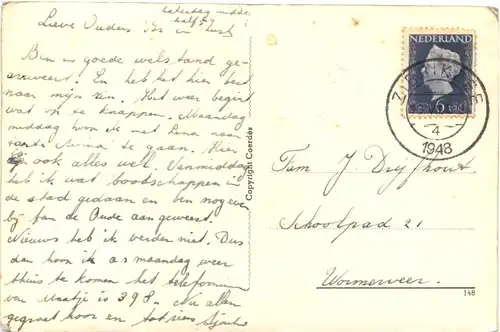 Zaterdag midda
half 5
Lieve Ouders en zus
Ben in goede welstand ge-
arriveert. En heb het hier best
naar mijn zin. Het weer begint
wat op te knappen. Maandag
middag hoop ik met Lena naar
tante Mima te gaan. Hier
is ook alles wel. Vanmiddag
heb ik wat bootschappen in
de stad gedaan en ben nog even
bij fan de Oude aan geweest.
Nieuws heb ik verder niet. Dus
dan hoop ik as maandag weer
thuis te komen het telefoonnum
van Maatje is 398. Nu allen
gegroet hoor en tot ziens Sijmke
Copyright Coerdès
NEDERLAND
6 ct
4
1948
Fam J Dryfhout
Schoolpad 21
Wormerveer.
148